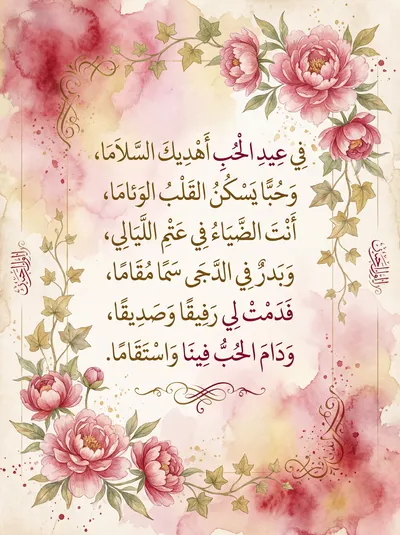 فِي عِيدِ الْحُبِ أَهْدِيكَ السَّلاَمَا،
وَحُبًّا يَسْكُنُ القَلْبُ الوَئامَا،
أَنْتَ الضَّيَاءُ فِي عَتْمِ اللَّيَالِي،
وَبَدرٌ فِي الدَّجَى سَمَا مُقَامًا،
فَدَمْتْ لِي رَفِيقًا وَصَدِيقًا،
وَدَامَ الحُبُّ فِينَا وَاسْتَقَامًا.